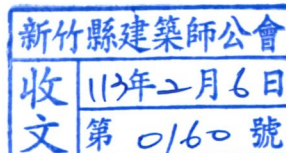 新竹縣建築師公會
收文
113年2月6日
第 0160 號